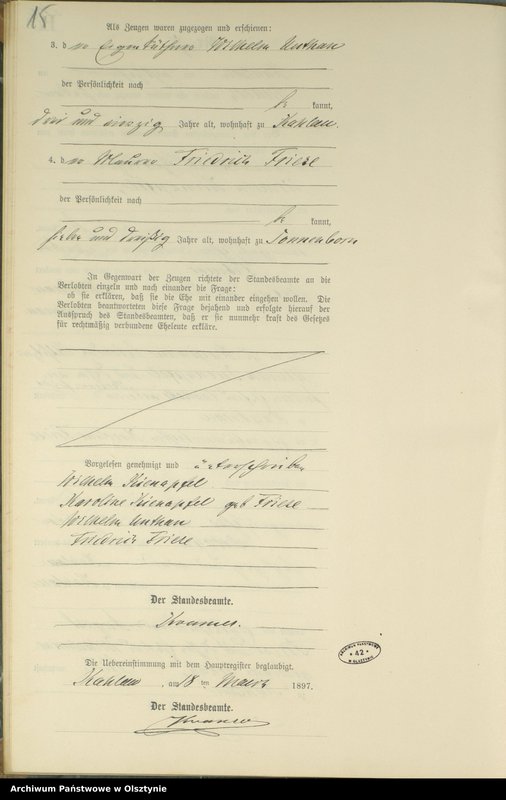 18
Als Zeugen waren zugezogen und erschienen:
3. der Eigenthümer Wilhelm Unthan
der Persönlichkeit nach
be kannt,
drei und vierzig Jahre alt, wohnhaft zu Kahlau.
4. der Maurer Friedrich Friese
der Persönlichkeit nach
be kannt,
sieben und dreißig Jahre alt, wohnhaft zu Sonnenborn
In Gegenwart der Zeugen richtete der Standesbeamte an die
Verlobten einzeln und nach einander die Frage:
ob sie erklären, daß sie die Ehe mit einander eingehen wollen. Die
Verlobten beantworteten diese Frage bejahend und erfolgte hierauf der
Ausspruch des Standesbeamten, daß er sie nunmehr kraft des Gesetzes
für rechtmäßig verbundene Eheleute erkläre.
Vorgelesen genehmigt und unterschrieben
Wilhelm Kienapfel
Karoline Kienapfel geb Friese
Wilhelm Unthan
Friedrich Friese
Der Standesbeamte.
Kramer.
Die Uebereinstimmung mit dem Hauptregister beglaubigt.
Kahlau, am 18 ten März 1897.
Der Standesbeamte.
Kramer
ARCHIWUM PAŃSTWOWE
* 42 *
W OLSZTYNIE
Archiwum Państwowe w Olsztynie